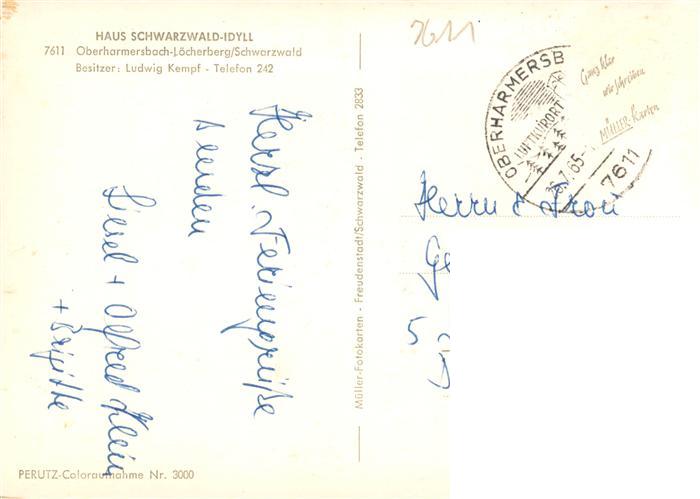 HAUS SCHWARZWALD-IDYLL
7611 Oberharmersbach-Löcherberg/Schwarzwald
Besitzer: Ludwig Kempf - Telefon 242
Herzl. Feriengrüße
senden
Liesel + Alfred Klein
+ Brigitte
PERUTZ-Coloraufnahme Nr. 3000
Müller-Fotokarten - Freudenstadt/Schwarzwald - Telefon 2833
7611
OBERHARMERSB
LUFTKURORT
7.65-
7611
Ganz klar
wir schreiben
MÜLLER-Karten
Herrn & Frau
Ge